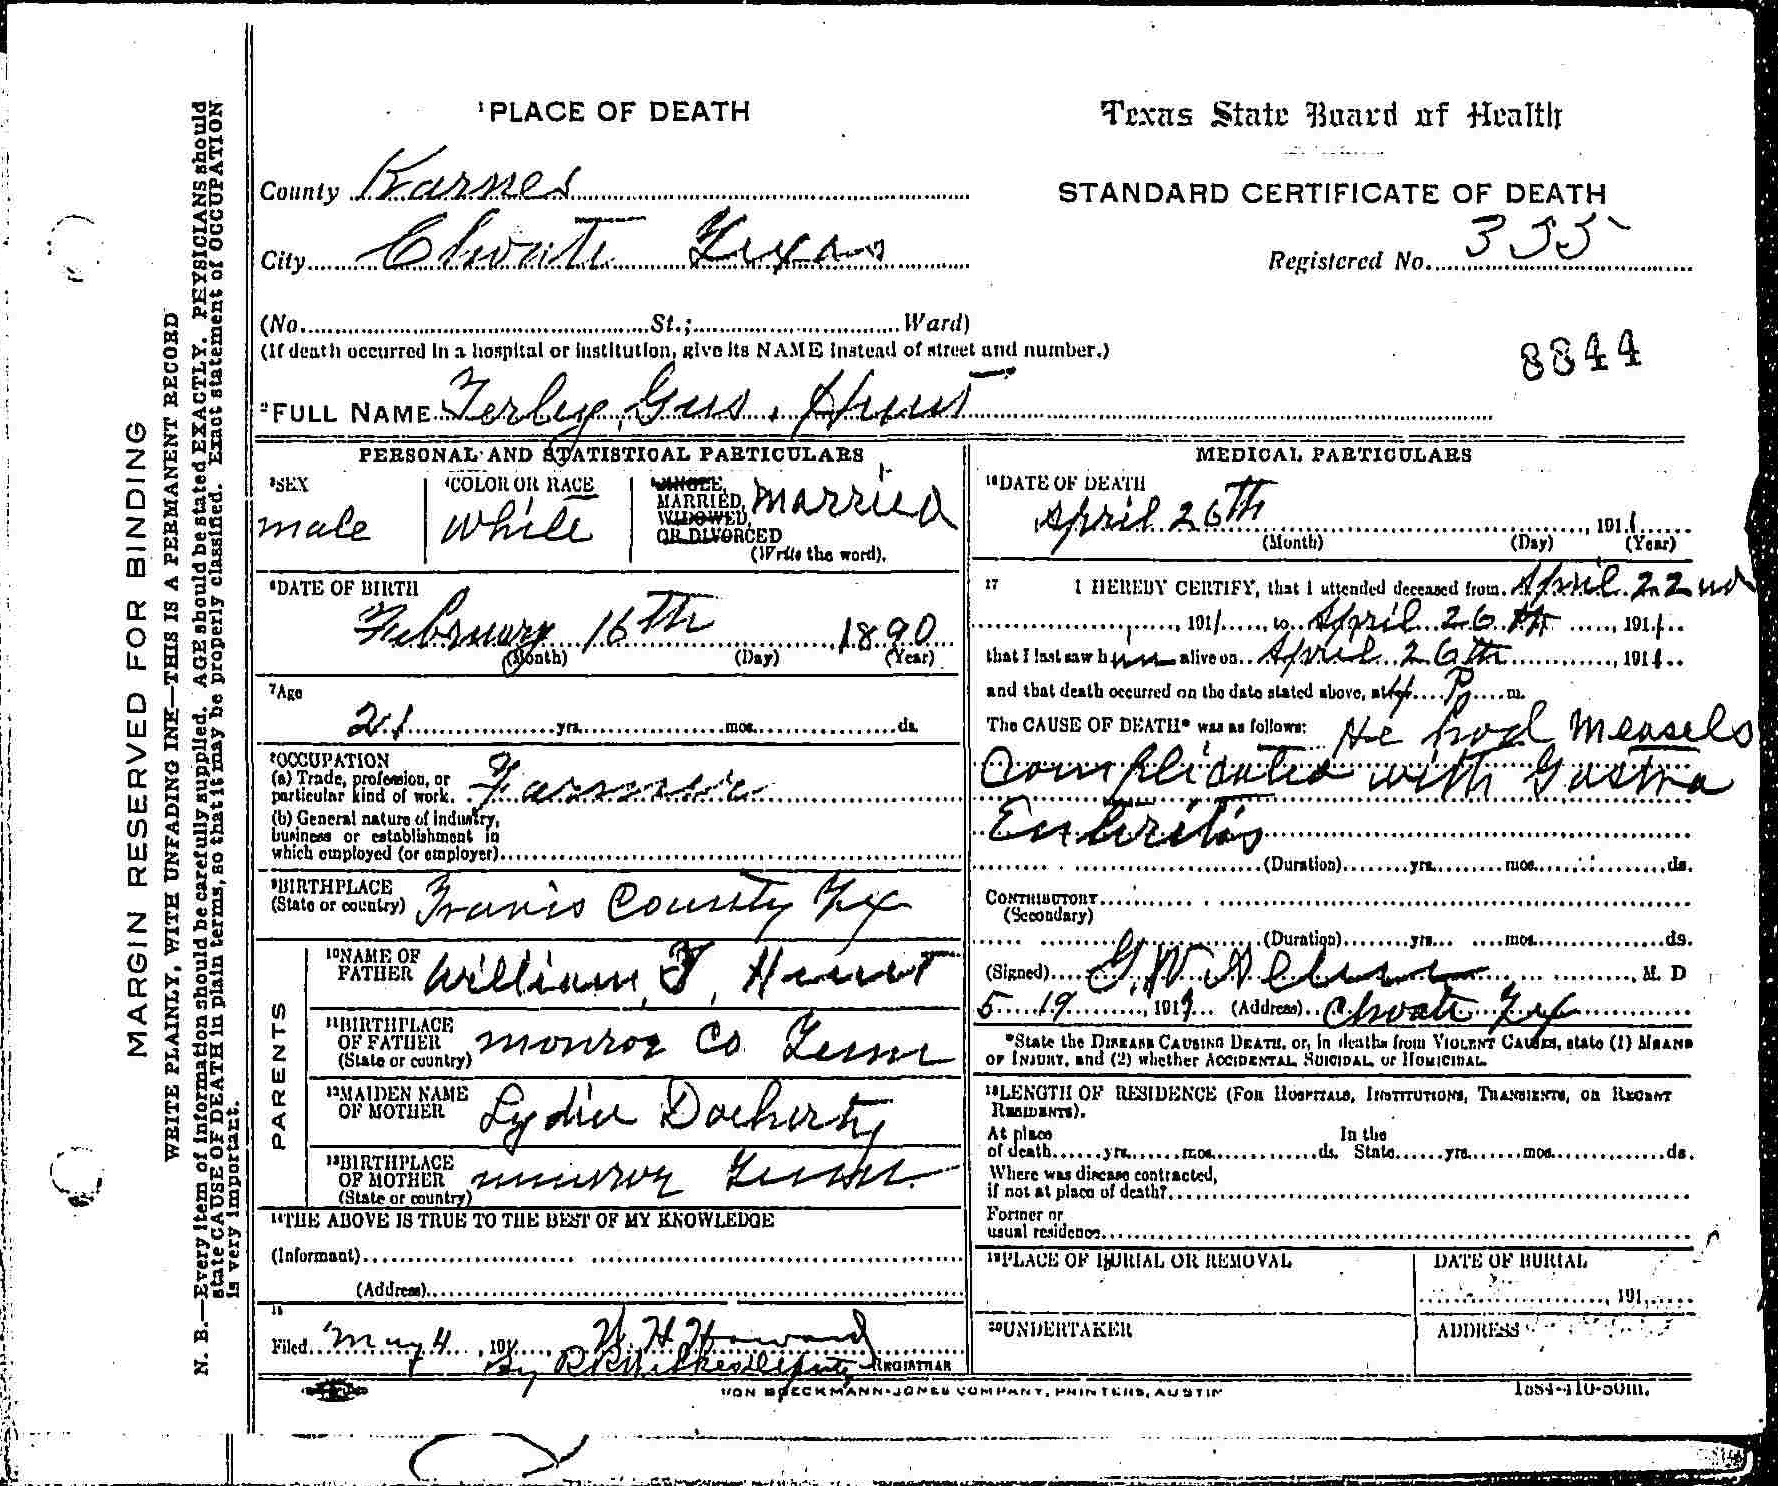 MARGIN RESERVED FOR BINDING
WRITE PLAINLY, WITH UNFADING INK—THIS IS A PERMANENT RECORD
N. B.—Every item of information should be carefully supplied. AGE should be stated EXACTLY. PHYSICIANS should
state CAUSE OF DEATH in plain terms, so that it may be properly classified. Exact statement of OCCUPATION
is very important.
1 PLACE OF DEATH
County Karnes
City Choate Texas
(No. St.; Ward)
(If death occurred in a hospital or institution, give its NAME instead of street and number.)
Texas State Board of Health
STANDARD CERTIFICATE OF DEATH
Registered No. 355
8844
2 FULL NAME Ferby, Gus. Hunt
PERSONAL AND STATISTICAL PARTICULARS
3 SEX
male
4 COLOR OR RACE
White
SINGLE,
MARRIED,
WIDOWED,
OR DIVORCED
(Write the word).
married
6 DATE OF BIRTH
February 16th 1890
(Month) (Day) (Year)
7 Age
21 yrs. mos. ds.
8 OCCUPATION
(a) Trade, profession, or
particular kind of work. Farmer
(b) General nature of industry,
business or establishment in
which employed (or employer)
9 BIRTHPLACE
(State or country) Travis County Tex
PARENTS
10 NAME OF
FATHER William, F, Hunt
11 BIRTHPLACE
OF FATHER
(State or country) monroe Co Tenn
12 MAIDEN NAME
OF MOTHER Lydia Doeherty
13 BIRTHPLACE
OF MOTHER
(State or country) munroe Tenn.
14 THE ABOVE IS TRUE TO THE BEST OF MY KNOWLEDGE
(Informant)
(Address)
15
Filed May 4, 1911 W H Howard
By Deputy REGISTRAR
MEDICAL PARTICULARS
16 DATE OF DEATH
April 26th, 1911
(Month) (Day) (Year)
17 I HEREBY CERTIFY, that I attended deceased from April 22nd
, 1911, to April 26th, 1911
that I last saw him alive on April 26th, 1911
and that death occurred on the date stated above, at 4 P m.
The CAUSE OF DEATH* was as follows: He had Measels
Complicated with Gastra
Enteritis
(Duration) yrs. mos. ds.
CONTRIBUTORY
(Secondary)
(Duration) yrs. mos. ds.
(Signed) G. W. M. D
5 19, 191 (Address) Choate Tex
*State the DISEASE CAUSING DEATH, or, in deaths from VIOLENT CAUSES, state (1) MEANS
OF INJURY, and (2) whether ACCIDENTAL SUICIDAL or HOMICIDAL.
18 LENGTH OF RESIDENCE (FOR HOSPITALS, INSTITUTIONS, TRANSIENTS, OR RECENT
RESIDENTS).
At place In the
of death yrs. mos. ds. State yrs. mos. ds.
Where was disease contracted,
if not at place of death?
Former or
usual residence
19 PLACE OF BURIAL OR REMOVAL
DATE OF BURIAL
, 191
20 UNDERTAKER
ADDRESS
VON BOECKMANN-JONES COMPANY, PRINTERS, AUSTIN
1884-410-50m.